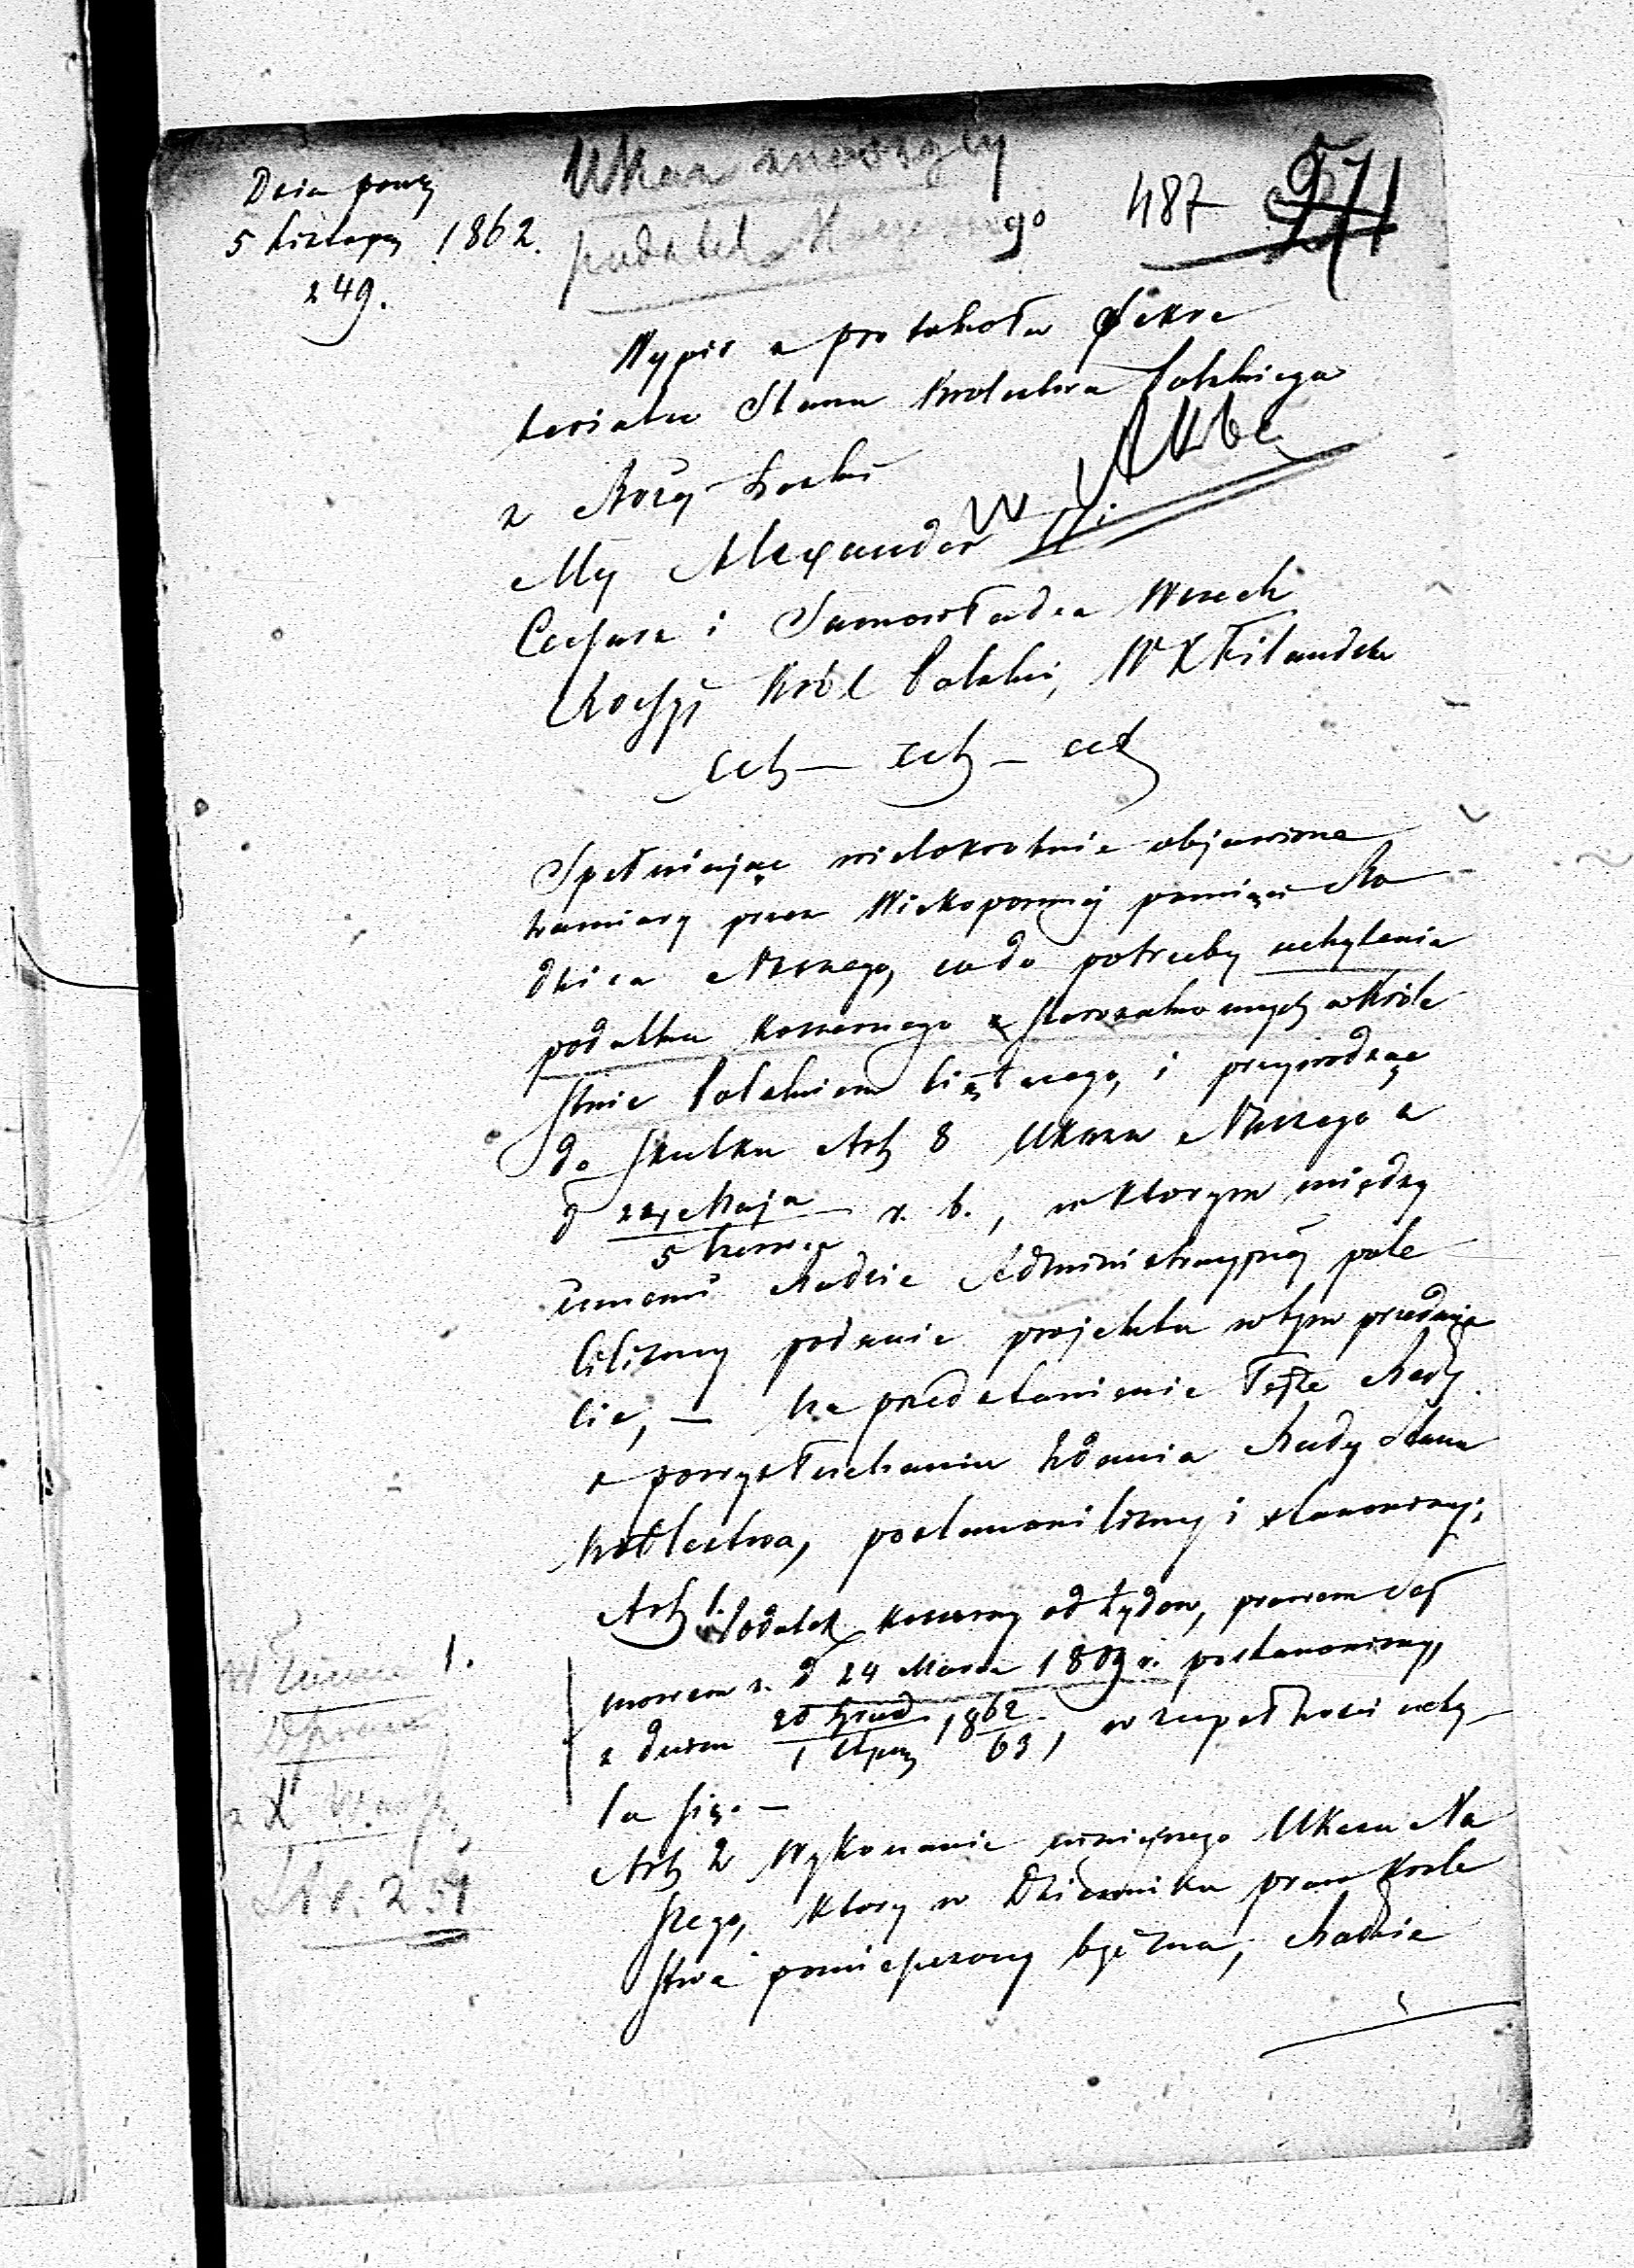 Dzien. powsz
5 Listopa 1862.
249.
Ukaz znoszący
podatek Koszerny
go
487
Wypis z protokołu Sekre
teriatu Stanu Krolestwa Polskiego
z Bożej Łaski
My Alexander II.
Cesarz i Samowładca Wszech
Rossyi Król Polski, W X Filandzki
ect — ect — ect
Spełniając wielokrotnie objawione
zamiary przez Wiekopomnej pamięci Ro
dzica Naszego, co do potrzeby uchylenia
podatku Koszernego z starozakonnych w Króle
stwie Polskiem ciężącego, i przywodząc
do skutku Art 8 Ukazu Naszego z
d 24 Maja r. b., w ktorym między
5 Czerwca
innemi Radzie Administracyjnej pole
ciliśmy podanie projektu w tym przedmio
cie, — na przedstawienie Tejże Rady
z powysłuchaniu zdania Rady Stanu
Królestwa, postanowiliśmy i stanowimy;
Art 1. Podatek Koszerny od Żydow, prawem Sej
mowem z d 24 Marca 1809 r. postanowiony,
z dniem 20 Grud 1862, w zupełności uchy
1 Stycz 63
la się. —
Art 2 Wykonanie niniejszego Ukazu Na
szego, ktory w Dzienniku praw Krole
stwa pomieszczony być ma, Radzie
1.
Str. 251